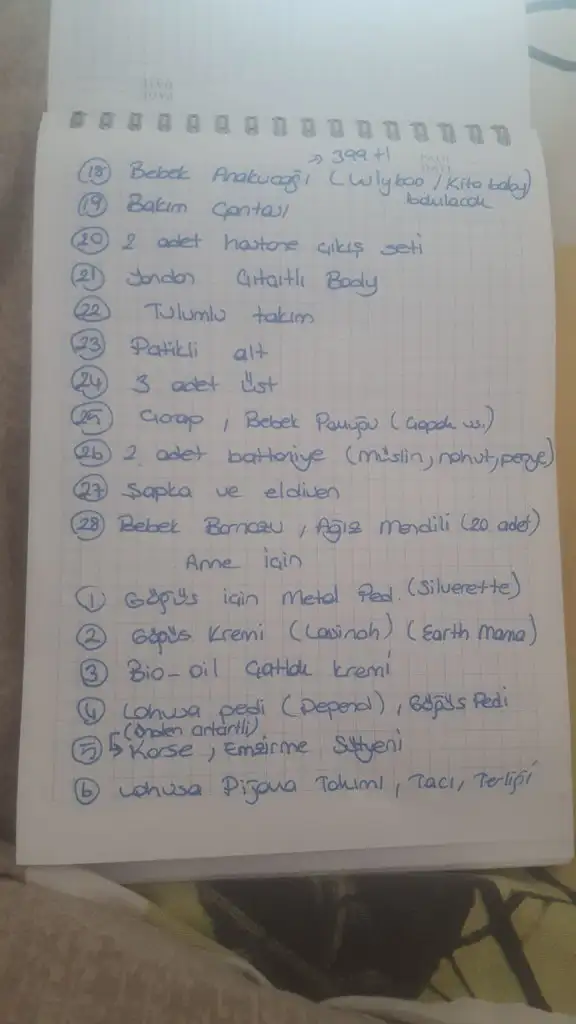 → 399 tl
18 Bebek Anakucağı (Wlyboo / Kita baby)
bakılacak
19 Bakım Çantası
20 2 adet hastane çıkış seti
21 Yandan Çıtçıtlı Body
22 Tulumlu takım
23 Patikli alt
24 3 adet üst
25 Çorap, Bebek Pamuğu (Capok vs.)
26 2 adet battaniye (müslin, nohut, penye)
27 Şapka ve eldiven
28 Bebek Bornozu, Ağız Mendili (20 adet)
Anne için
1 Göğüs için Metal Ped. (Silverette)
2 Göğüs Kremi (Lasinoh) (Earth Mama)
3 Bio-oil Çatlak kremi
4 Lohusa pedi (Depend), Göğüs Pedi
(önden çıtçıtlı)
5 ↳ Korse, Emzirme Sütyeni
6 Lohusa Pijama Takımı, Tacı, Terliği